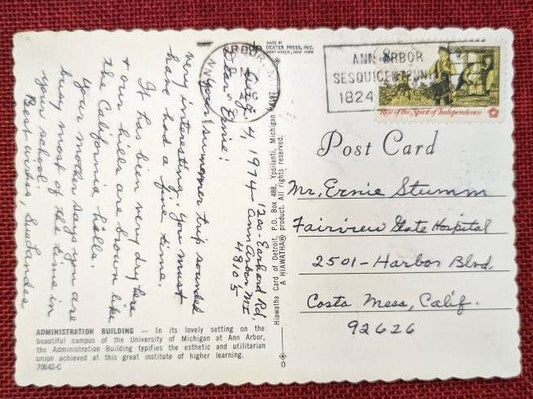 MADE BY
DEXTER PRESS, INC.
WEST NYACK, NEW YORK
ARBOR,
ANN ARBOR
1824
Rise of the Spirit of Independence
Post Card
Mr. Ernie Stumm
Fairview State Hospital
2501 - Harbor Blvd.
Costa Mesa, Calif.
92626
Hiawatha Card of Detroit, P.O. Box 488, Ypsilanti, Michigan
A HIAWATHA® product. All rights reserved.
4, 1974
1200 - Earhard Rd.
Ann Arbor MI
48105
Dear Ernie:
Your summer trip sounded
very interesting. You must
have had a fine time.
It has been very dry here
& our hills are brown like
the California hills.
Your mother says you are
busy most of the time in
your school.
Best wishes,
ADMINISTRATION BUILDING — In its lovely setting on the
beautiful campus of the University of Michigan at Ann Arbor,
the Administration Building typifies the esthetic and utilitarian
union achieved at this great institute of higher learning.
70542-C